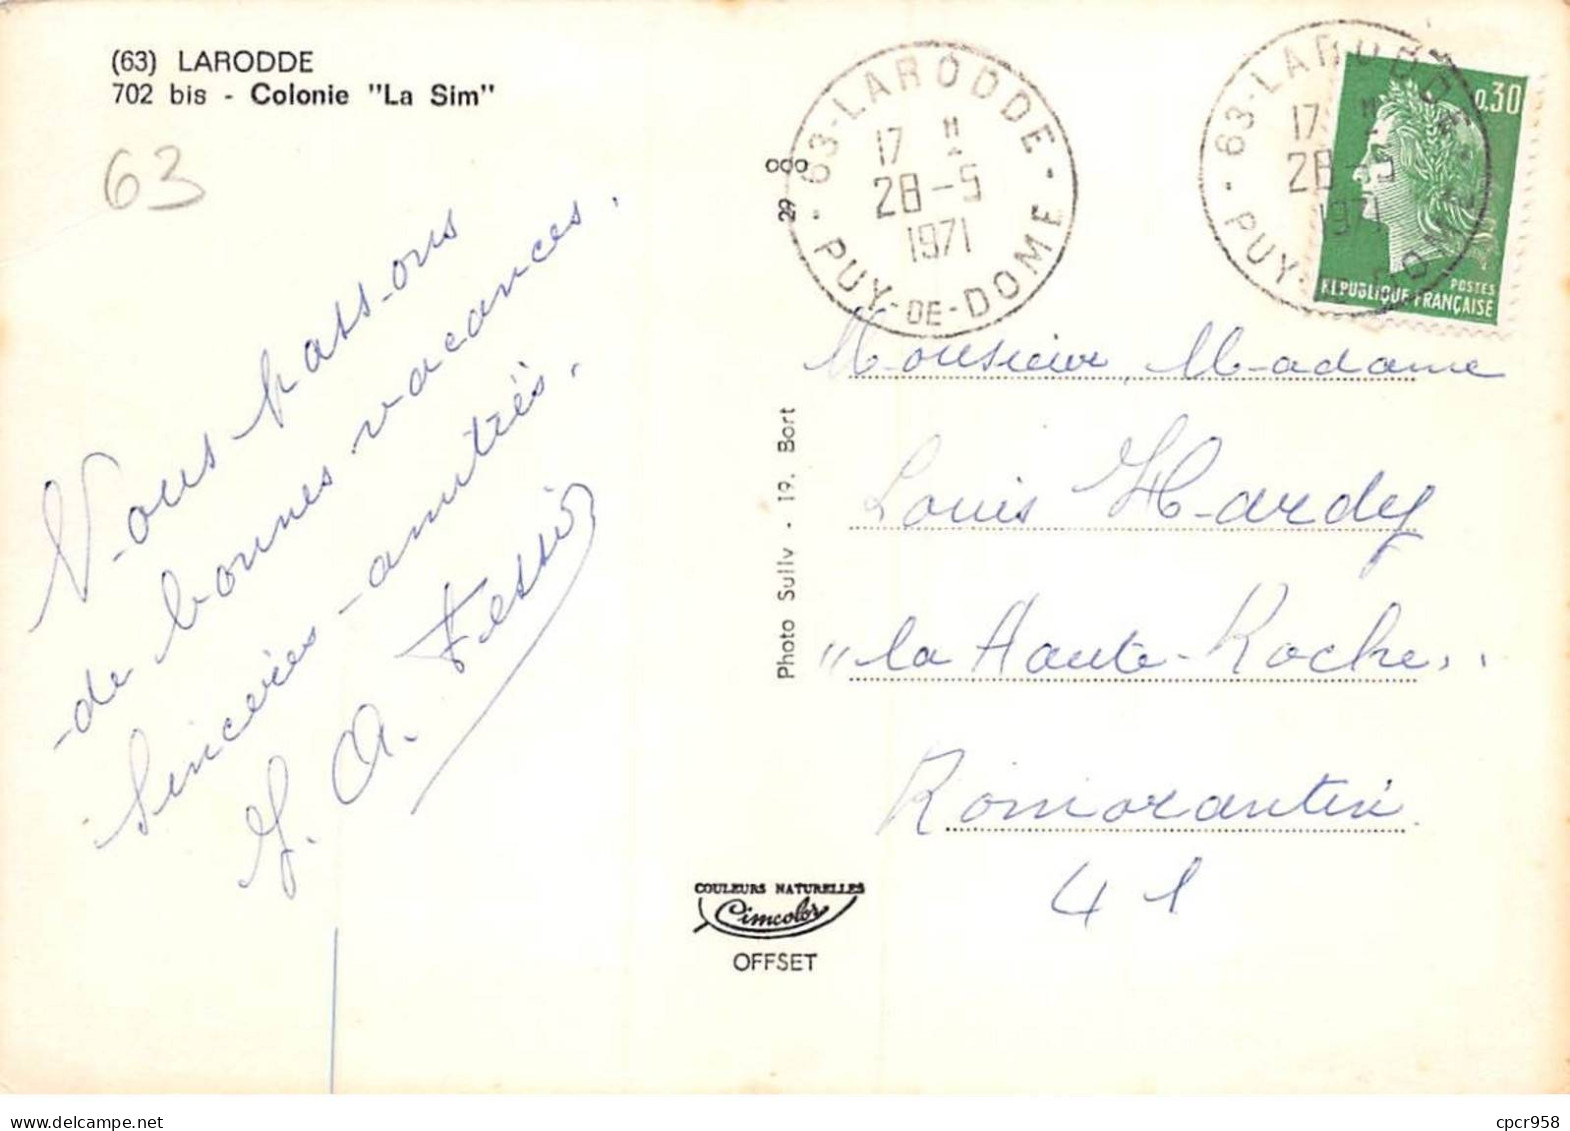 (63) LARODDE
702 bis - Colonie "La Sim"
63
Nous passons
de bonnes vacances.
Sincères amitiés.
A. Tessier
63-LARODDE
17 H
28-5
1971
PUY-DE-DOME
63-LARODDE
17 H
28-5
1971
PUY-DE-DOME
0,30
POSTES
REPUBLIQUE FRANÇAISE
29
Photo Sully - 19. Bort
Monsieur, Madame
Louis Hardy
"la Haute-Roche"
Romorantin
41
COULEURS NATURELLES
Cimcolor
OFFSET
cpcr958